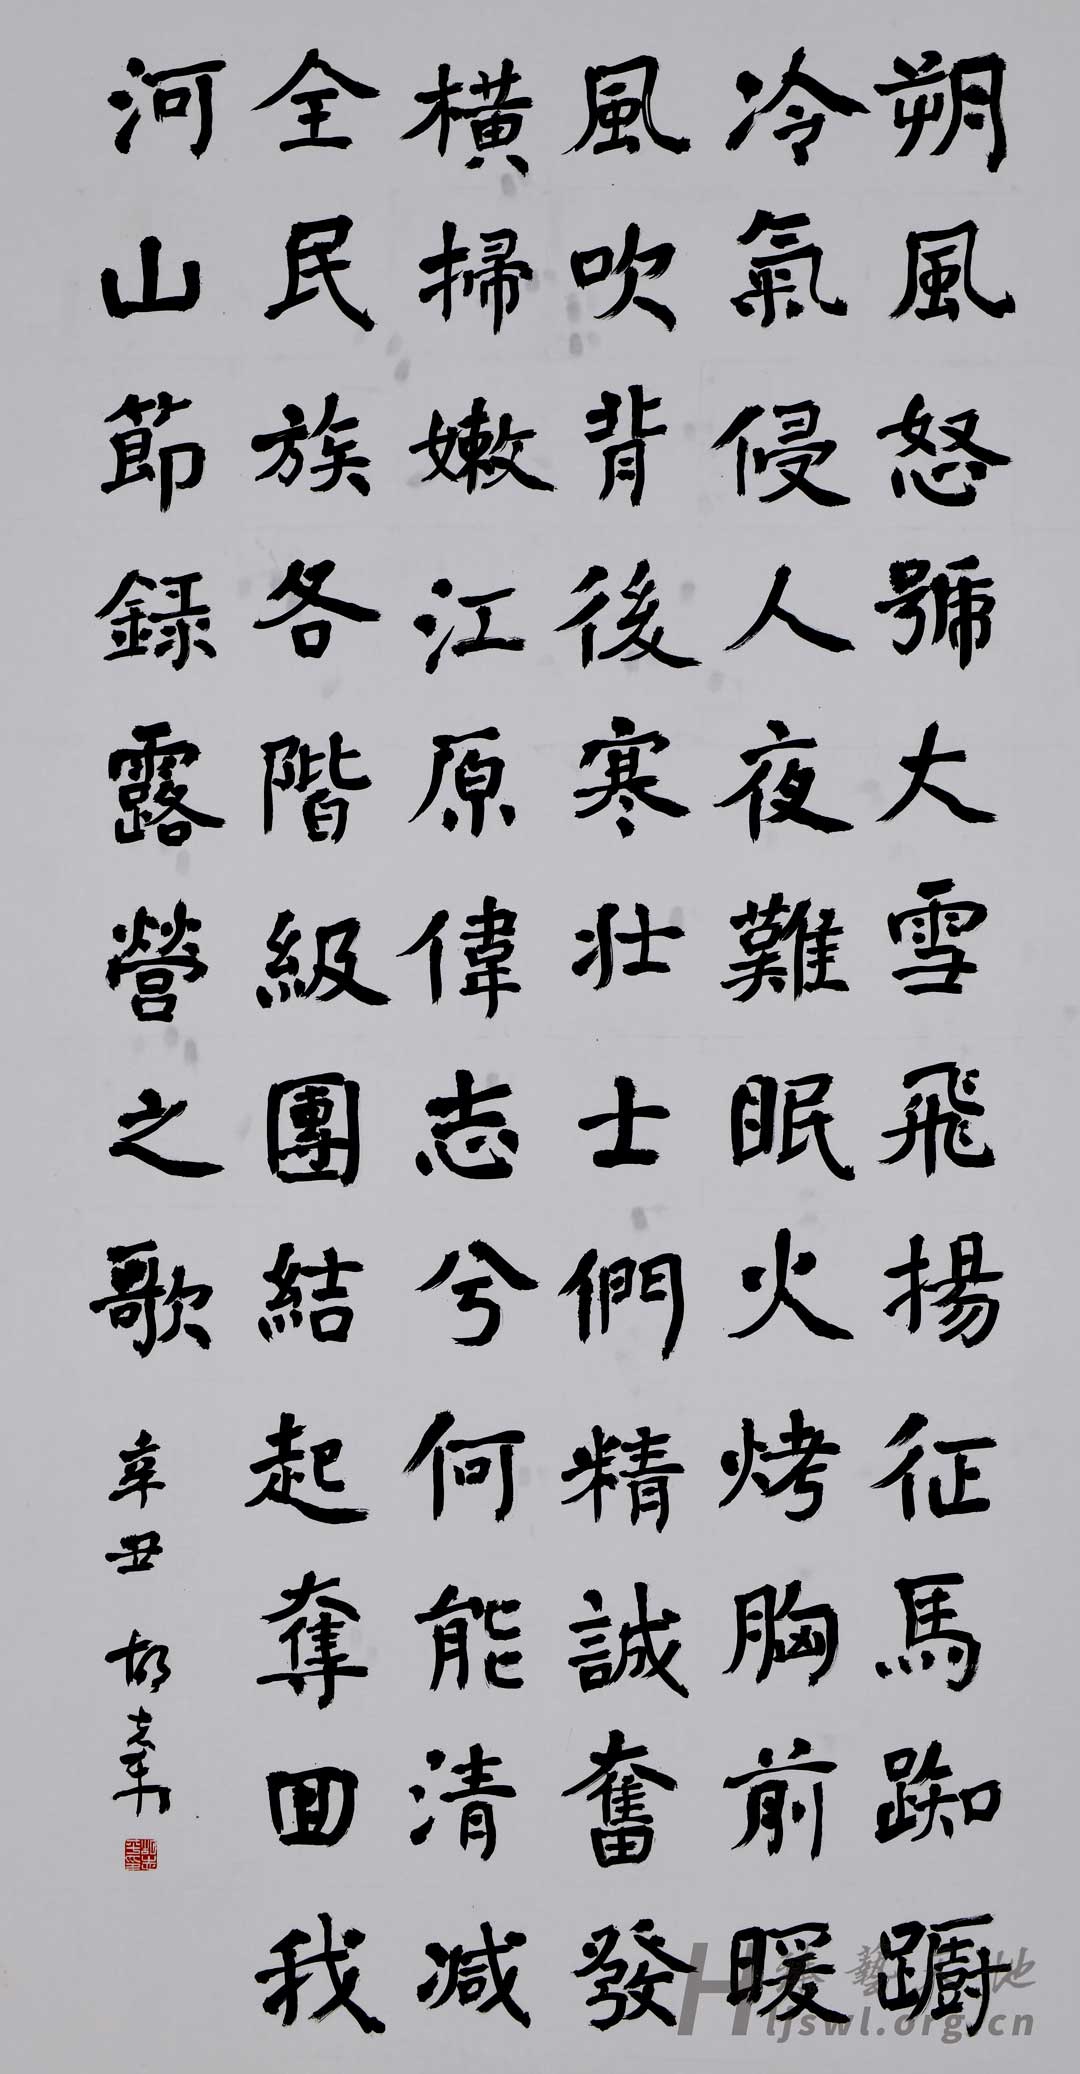 朔風怒號大雪飛揚征馬踟躕
冷氣侵人夜難眠火烤胸前暖
風吹背後寒壯士們精誠奮發
橫掃嫩江原偉志兮何能清減
全民族各階級團結起奪回我
河山節録露營之歌
辛丑胡志平書
藝地
hljswl.org.cn